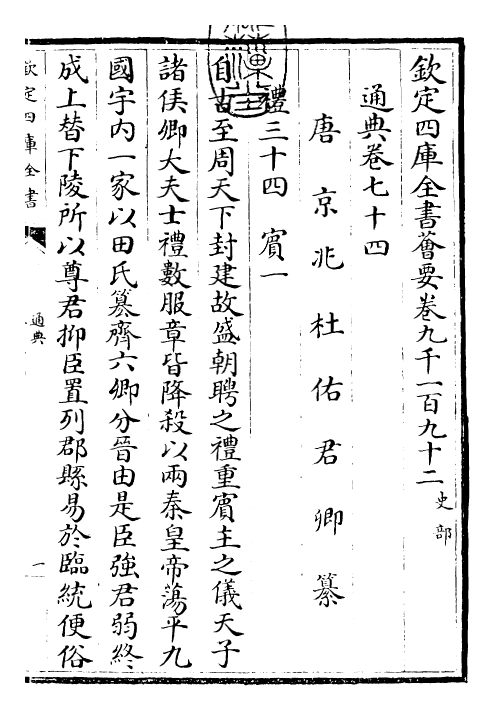 欽定四庫全書薈要卷九千一百九十二 史部
通典卷七十四
唐京兆杜佑君卿纂
禮三十四 賓一
自古至周天下封建故盛朝聘之禮重賓主之儀天子
諸侯卿大夫士禮數服章皆降殺以兩秦皇帝蕩平九
國宇内一家以田氏簒齊六卿分晉由是臣強君弱終
成上替下陵所以尊君抑臣置列郡縣易於臨統便俗
欽定四庫全書
通典
一